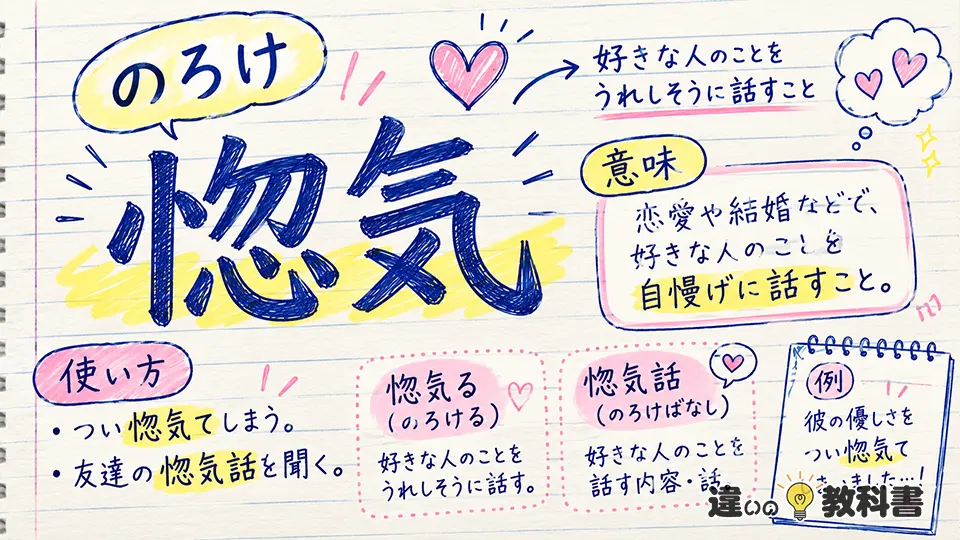 のろけ
惚気
好きな人のことを
うれしそうに話すこと
意味
恋愛や結婚などで、
好きな人のことを
自慢げに話すこと。
使い方
・つい惚気てしまう。
・友達の惚気話を聞く。
惚気る
(のろける)
好きな人のことを
うれしそうに話す。
惚気話
(のろけばなし)
好きな人のことを
話す内容・話
例
彼の優しさを
つい惚気て
いました…!
違いの教科書